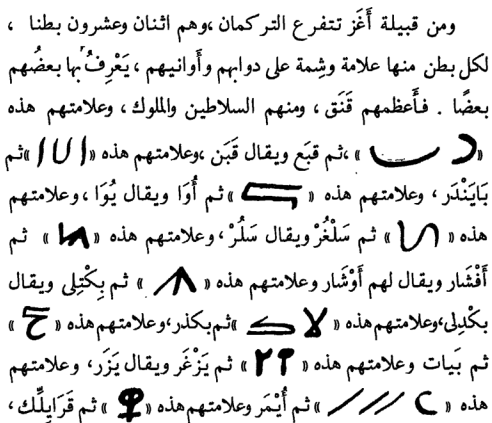 ومن قبيلة أَغَز تتفرع التركمان ،وهم اثنان وعشرون بطنا ،
لكل بطن منها علامة وسِمة على دوابهم وأَوانيهم ، يَعْرِفُ بها بعضُهم
بعضًا . فأَعظمهم قَنَق ، ومنهم السلاطين والملوك ، وعلامتهم هذه
« » ،ثم قبَع ويقال قَبَن ،وعلامتهم هذه « » ثم
بَايَنْدَر ، وعلامتهم هذه « » ثم أُوَا ويقال يُوَا ، وعلامتهم
هذه « » ثم سَلْغُرْ ويقال سَلُرْ ، وعلامتهم هذه « » ثم
أَفْشَار ويقال لهم أَوْشَار وعلامتهم هذه « » ثم بِكْتِلِى ويقال
بكْدِلِى،وعلامتهم هذه « » ثم بكذر،وعلامتهم هذه « »
ثم بَيات وعلامتهم هذه « » ثم يَزْغَر ويقال يَزَر، وعلامتهم
هذه « » ثم أَيْمَر وعلامتهم هذه « » ثم قَرَابِلُك ،